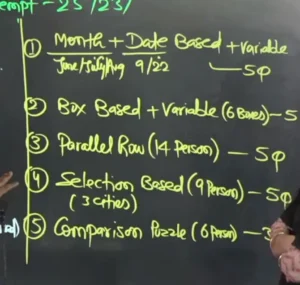 empt - 25/23/
① Month + Date Based + variable
June/July/Aug 9/22 — 5Q
② Box Based + Variable (6 Boxes) - 5
③ Parallel Row (14 Person) — 5Q
④ Selection Based (9 Person) — 5Q
(3 cities)
⑤ Comparison Puzzle (6 Person) — 3